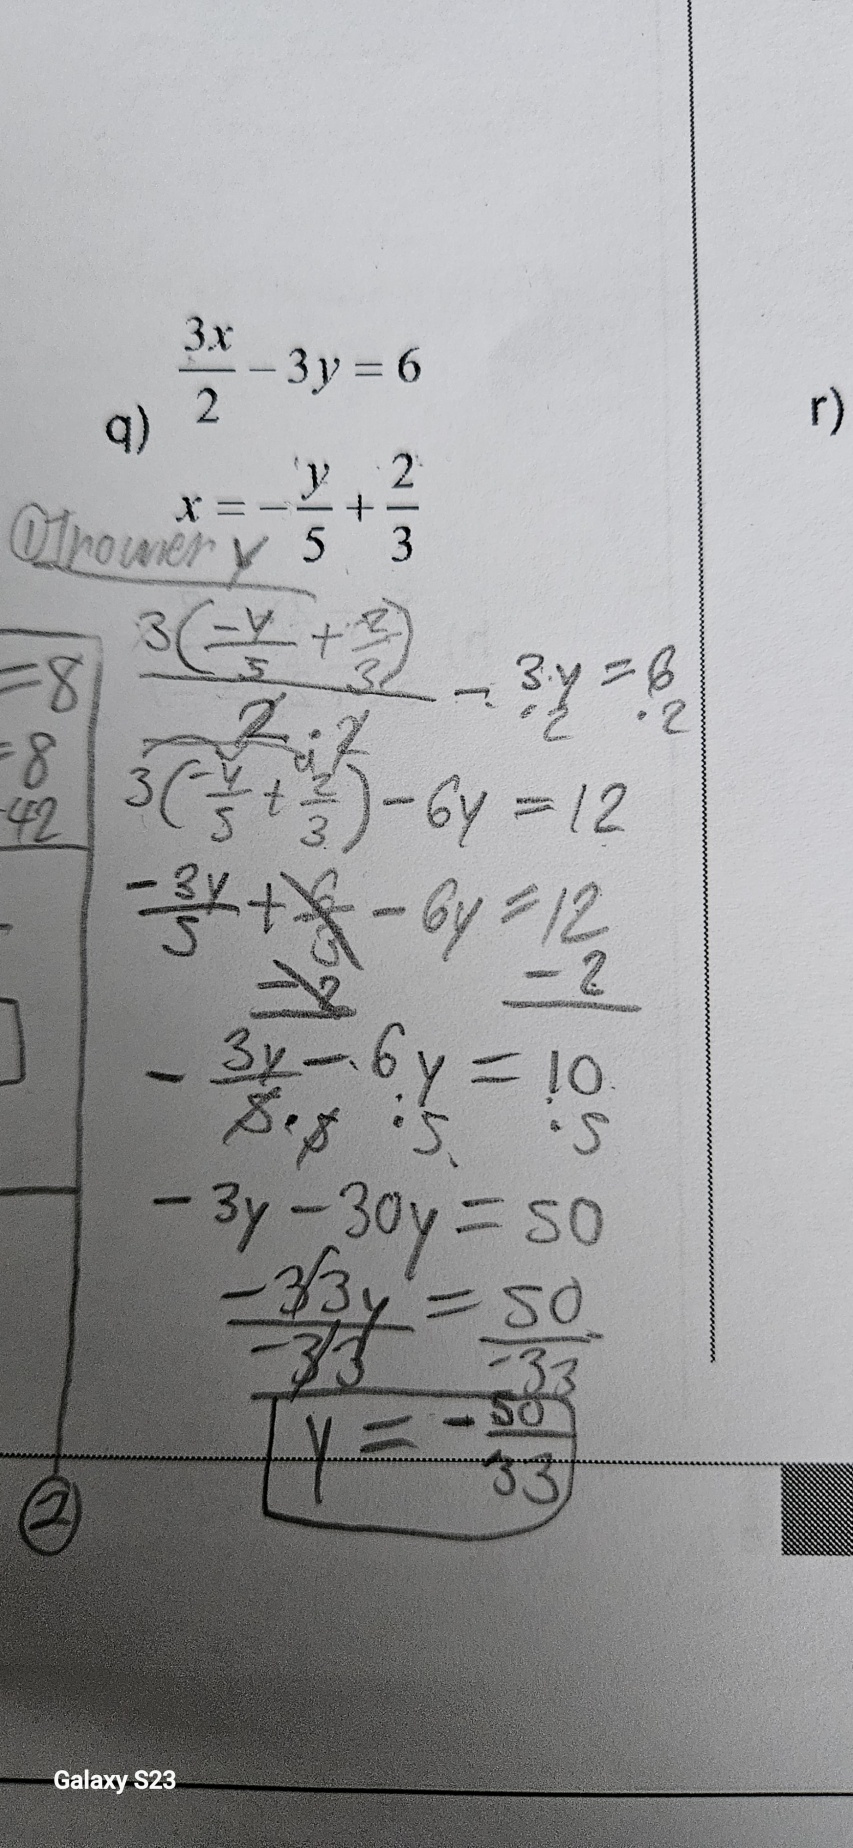 3x/2 - 3y = 6
q)
r)
x = -y/5 + 2/3
① Trouver y
3(-y/5 + 2/3)/2 · 2 - 3y · 2 = 6 · 2
=8
=8
-42
3(-y/5 + 2/3) - 6y = 12
-3y/5 + 6/3 - 6y = 12
-2 -2
- 3y/5 · 5 - 6y · 5 = 10 · 5
- 3y - 30y = 50
-33y/-33 = 50/-33
y = - 50/33
②
Galaxy S23